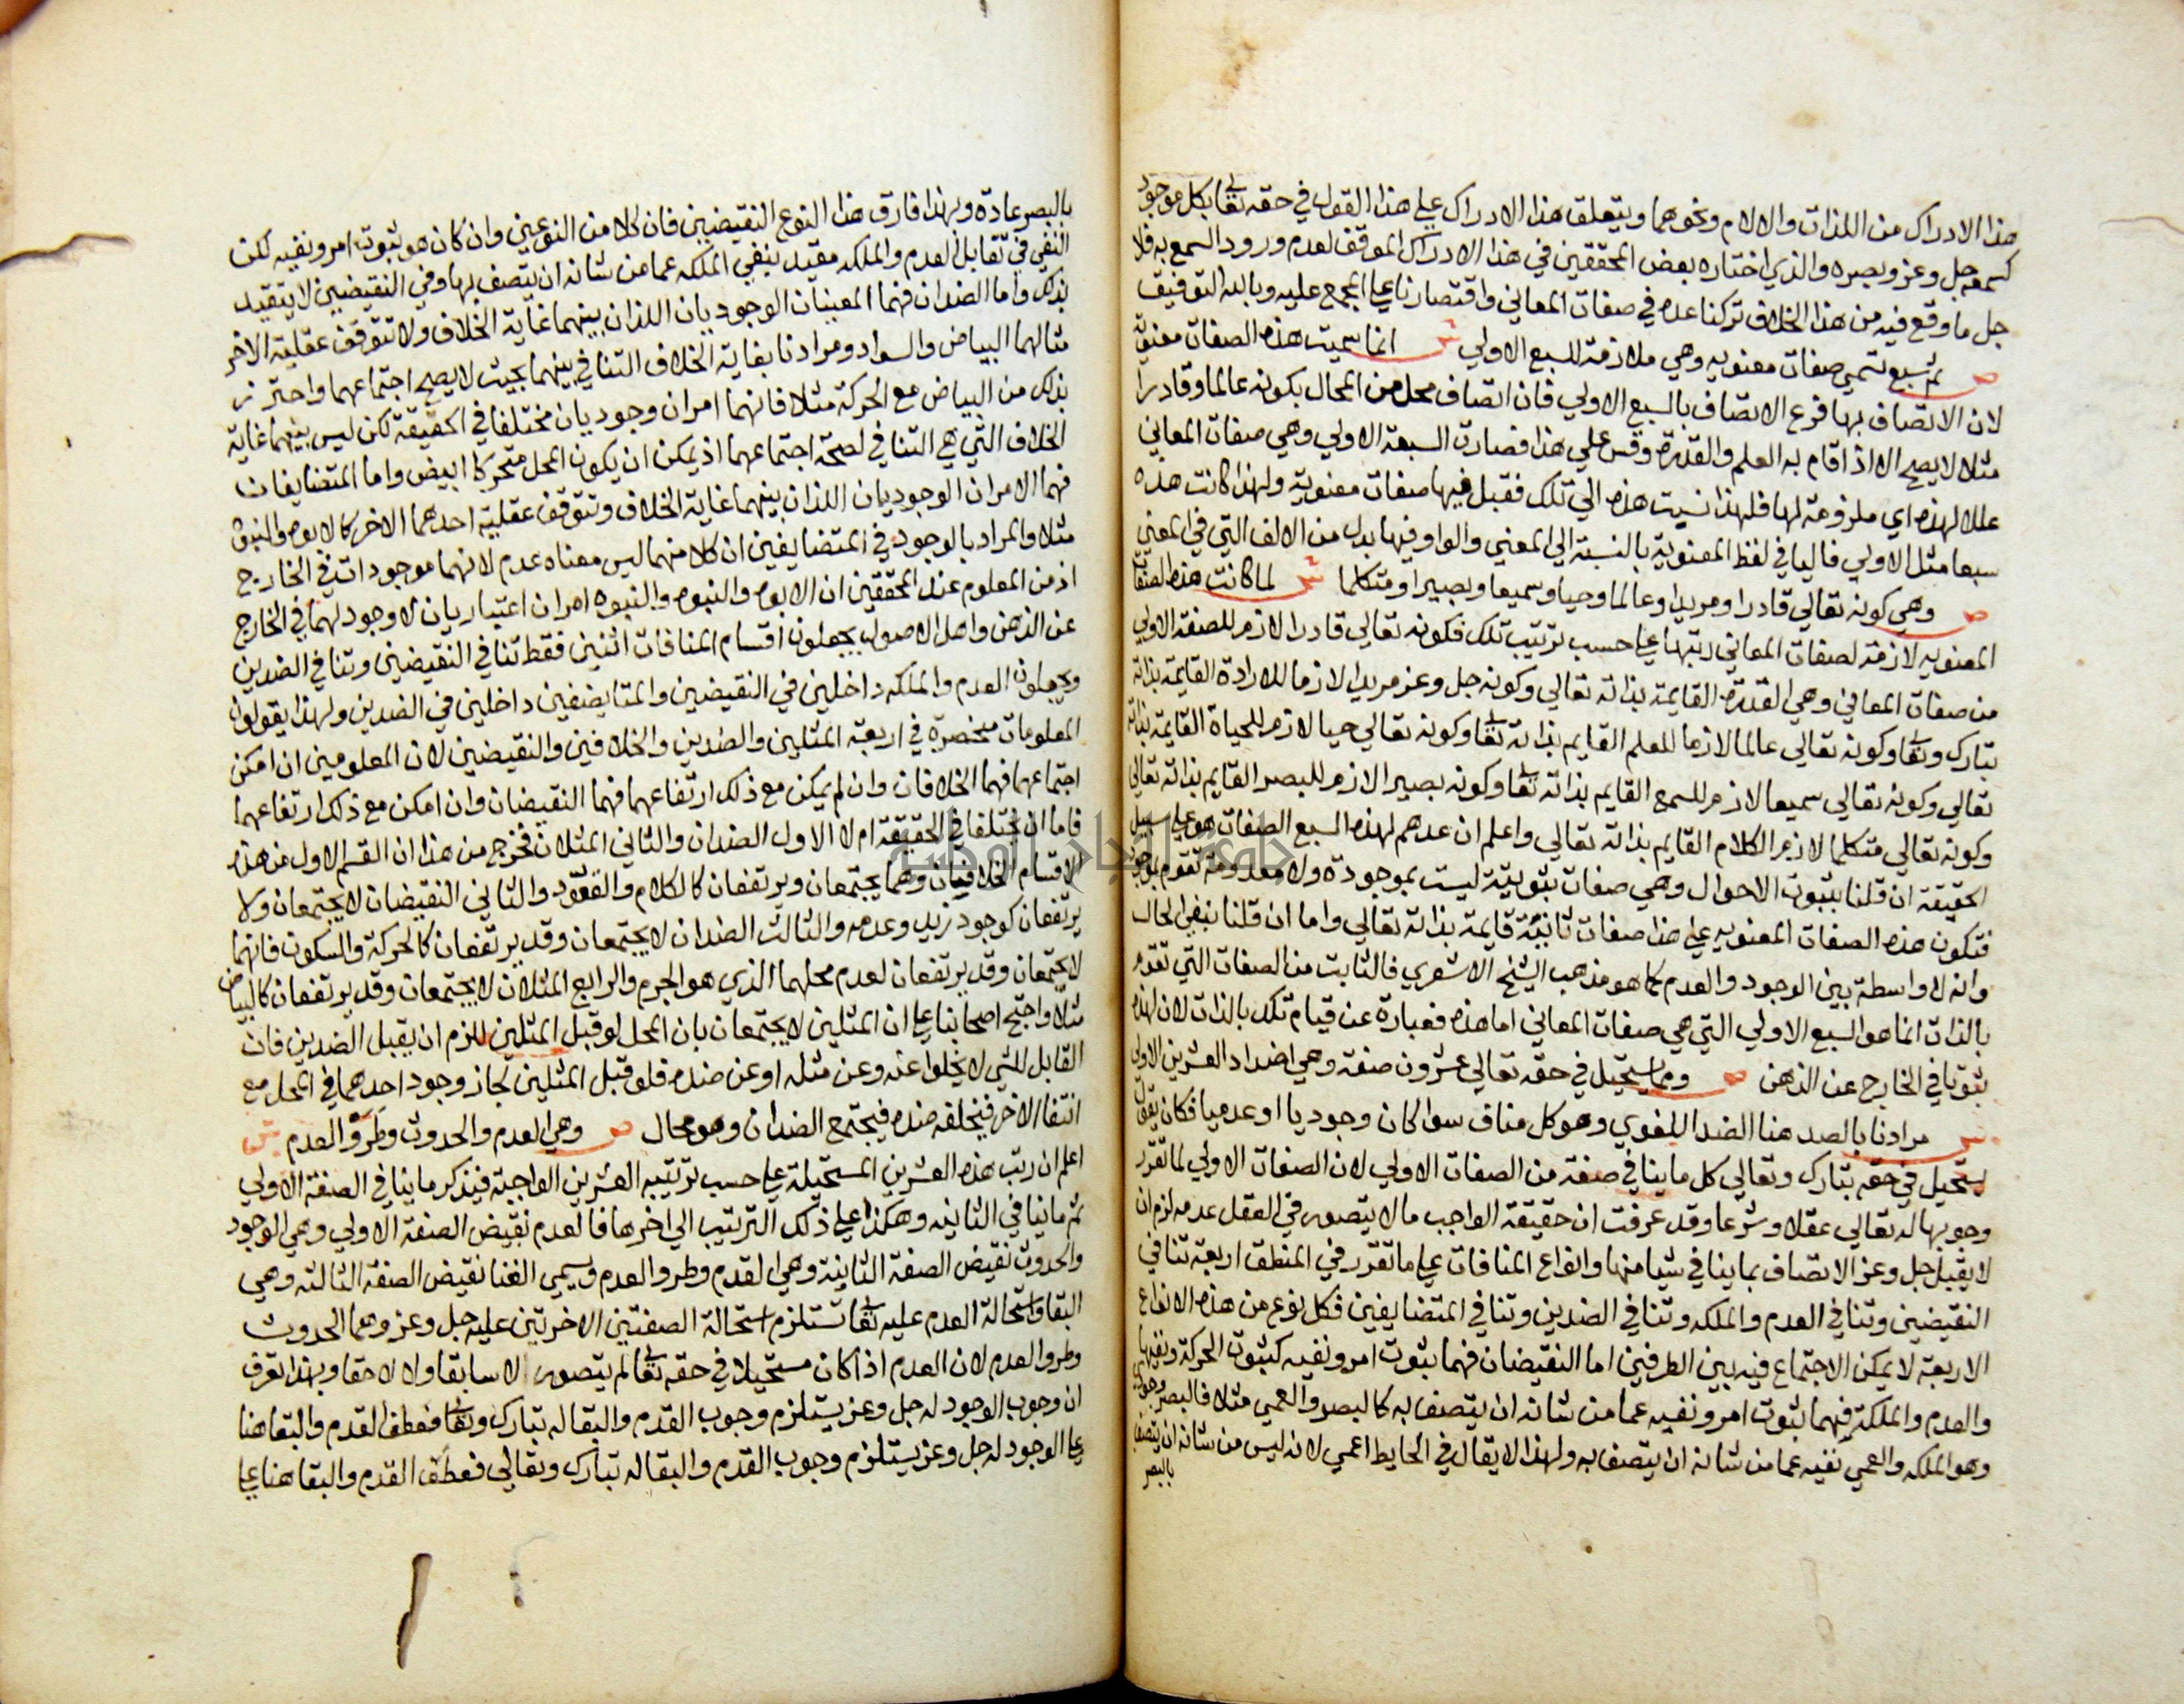 هذا الادراك من اللذات والالام ونحوهما ويتعلق هذا الادراك علي هذا القول في حقه تعا بكل موجود
كسمعه جل وعز وبصره والذي اختاره بعض المحققين في هذا الادراك الموقف لعدم ورود السمع به فلا
جل ما وقع فيه من هذا الخلاف تركنا عده في صفات المعاني واقتصارنا علي المجمع عليه وبالله التوفيق
ص ثم سبع تسمي صفات معنويه وهي ملازمة للسبع الاولي ش انما سميت هذه الصفات معنوية
لان الاتصاف بها فرع الاتصاف بالسبع الاولي فان اتصاف محل من المحال بكونه عالما وقادرا
مثلا لا يصح الا اذا قام به العلم والقدرة وقس علي هذا فصارت السبعة الاولي وهي صفات المعاني
عللا لهذه اي ملزومة لها فلهذا نسبت هذه الي تلك فقيل فيها صفات معنوية ولهذا كانت هذه
سبعا مثل الاولي فاليا في لفظ المعنوية بالنسبة الي المعني والواو فيها بدل من الالف التي في المعني
ص وهي كونه تعالي قادرا ومريدا وعالما وحيا وسميعا وبصيرا ومتكلما ش لما كانت هذه الصفات
المعنويه لازمة لصفات المعاني رتبها علي حسب ترتيب تلك فكونه تعالي قادرا لازم للصفة الاولي
من صفات المعاني وهي القدرة القايمة بذاته تعالي وكونه جل وعز مريدا لازما للارادة القايمة بذاته
تبارك وتعا وكونه تعالي عالما لازما للعلم القايم بذاته تعا وكونه تعالي حيا لازم للحياة القايمة بذاته
تعالي وكونه تعالي سميعا لازم للسمع القايم بذاته تعا وكونه بصيرا لازم للبصر القايم بذاته تعالي
وكونه تعالي متكلما لازم الكلام القايم بذاته تعالي واعلم ان عدهم لهذه السبع الصفات هو علي سبيل
الحقيقة ان قلنا بثبوت الاحوال وهي صفات ثبوتية ليست بموجودة ولا معدومة تقوم بموجود
فتكون هذه الصفات المعنويه علي هذا صفات ثابتة قايمة بذاته تعالي واما ان قلنا بنفي الحال
وانه لا واسطة بين الوجود والعدم كما هو مذهب الشيخ الاشعري فالثابت من الصفات التي تقدم
بالذات انما هو السبع الاولي التي هي صفات المعاني اما هذه فعبارة عن قيام تلك بالذات لان لهذه
ثبوتا في الخارج عن الذهن ص ومما يستحيل في حقه تعالي عشرون صفة وهي اضداد العشرين الاولي
ش مرادنا بالضد هنا الضد اللغوي وهو كل مناف سوا كان وجوديا او عدميا فكان يقول
يستحيل في حقه تبارك وتعالي كل ما ينافي صفة من الصفات الاولي لان الصفات الاولي لما تقرر
وجوبها له تعالي عقلا وشرعا وقد عرفت ان حقيقة الواجب ما لا يتصور في العقل عدمه لزم ان
لا يقبل جل وعز الاتصاف بما ينافي شيا منها وانواع المنافات علي ما تقرر في المنطق اربعة تنافي
النقيضين وتنافي العدم والملكه وتنافي الضدين وتنافي المتضايفين فكل نوع من هذه الانواع
الاربعة لا يمكن الاجتماع فيه بين الطرفين اما النقيضان فهما ثبوت امر ونفيه كثبوت الحركة ونفيها
والعدم والملكة فهما ثبوت امر ونفيه عما من شانه ان يتصف به كالبصر والعمي مثلا فالبصر وجودي
وهو الملكه والعمي نفيه عما من شانه ان يتصف به ولهذا لا يقال في الحايط اعمي لانه ليس من شانه ان يتصف
بالبصر
بالبصر عادة وبهذا فارق هذا النوع النقيضين فان كلا من النوعين وان كان هو ثبوت امر ونفيه لكن
النفي في تقابل العدم والملكه مقيد بنفي الملكه عما من شانه ان يتصف بها وفي النقيضين لا يتقيد
بذلك واما الضدان فهما المعنيان الوجوديان اللذان بينهما غاية الخلاف ولا تتوقف عقلية الاخر
مثالهما البياض والسواد ومرادنا بغاية الخلاف التنافي بينهما بحيث لا يصح اجتماعهما واحترز
بذلك من البياض مع الحركة مثلا فانهما امران وجوديان مختلفا في الحقيقة لكن ليس بينهما غاية
الخلاف التي هي التنافي لصحة اجتماعهما اذ يمكن ان يكون المحل متحركا ابيض واما المتضايفان
فهما الامران الوجوديان اللذان بينهما غاية الخلاف وتتوقف عقلية احدهما الاخر كالابوه والبنوه
مثلا والمراد بالوجود في المتضايفين ان كلا منهما ليس معناه عدم لانهما موجودات في الخارج
اذ من المعلوم عند المحققين ان الابوه والبنوه والنبوه امران اعتباريان لا وجود لهما في الخارج
عن الذهن واهل الاصول يجعلون اقسام المنافات اثنين فقط تنافي النقيضين وتنافي الضدين
ويجعلون العدم والملكه داخلين في النقيضين والمتايضفين داخلين في الضدين ولهذا يقولون
المعلومات منحصرة في اربعة المثلين والضدين والخلافين والنقيضين لان المعلومين ان امكن
اجتماعهما فهما الخلافان وان لم يمكن مع ذلك ارتفاعهما فهما النقيضان وان امكن مع ذلك ارتفاعهما
فاما ان يختلفا في الحقيقة ام لا الاول الضدان والثاني المثلان فخرج من هذا ان القسم الاول من هذه
الاقسام الخلافيان وهما يجتمعان ويرتفعان كالكلام والقعود والثاني النقيضان لا يجتمعان ولا
يرتفعان كوجود زيد وعدمه والثالث الضدان لا يجتمعان وقد يرتفعان كالحركة والسكون فانهما
لا يجتمعان وقد يرتفعان لعدم محلهما الذي هو الجرم والرابع المثلان لا يجتمعان وقد يرتفعان كالبياض
مثلا واحتج اصحابنا علي ان المثلين لا يجتمعان بان المحل لو قبل المثلين للزم ان يقبل الضدين فان
القابل للشي لا يخلوا عنه وعن مثله او عن ضده فلو قبل المثلين لجاز وجود احدهما في المحل مع
انتفا الاخر فيخلفه ضده فيجتمع الضدان وهو محال ص وهي العدم والحدوث وطرو العدم ش
اعلم ان رتب هذه العشرين المستحيلة علي حسب ترتيبه العشرين الواجبة فيذكر ما ينافي الصفة الاولي
ثم ما ينافي الثانيه وهكذا علي ذلك الترتيب الي اخرها فالعدم نقيض الصفة الاولي وهي الوجود
والحدوث نقيض الصفة الثانية وهي القدم وطرو العدم ويسمي الفنا نقيض الصفة الثالثه وهي
البقا واستحالة العدم عليه تعا تستلزم استحالة الصفتين الاخرتين عليه جل وعز وهما الحدوث
وطرو العدم لان العدم اذا كان مستحيلا في حقه تعا لم يتصور لا سابقا ولا لاحقا وبهذا تعرف
ان وجوب الوجود له جل وعز يستلزم وجوب القدم والبقا له تبارك وتعا فعطف القدم والبقا هنا
علي الوجود له جل وعز يستلزم وجوب القدم والبقا له تبارك وتعالي فعطف القدم والبقا هنا علي
جامعة النجاح الوطنية